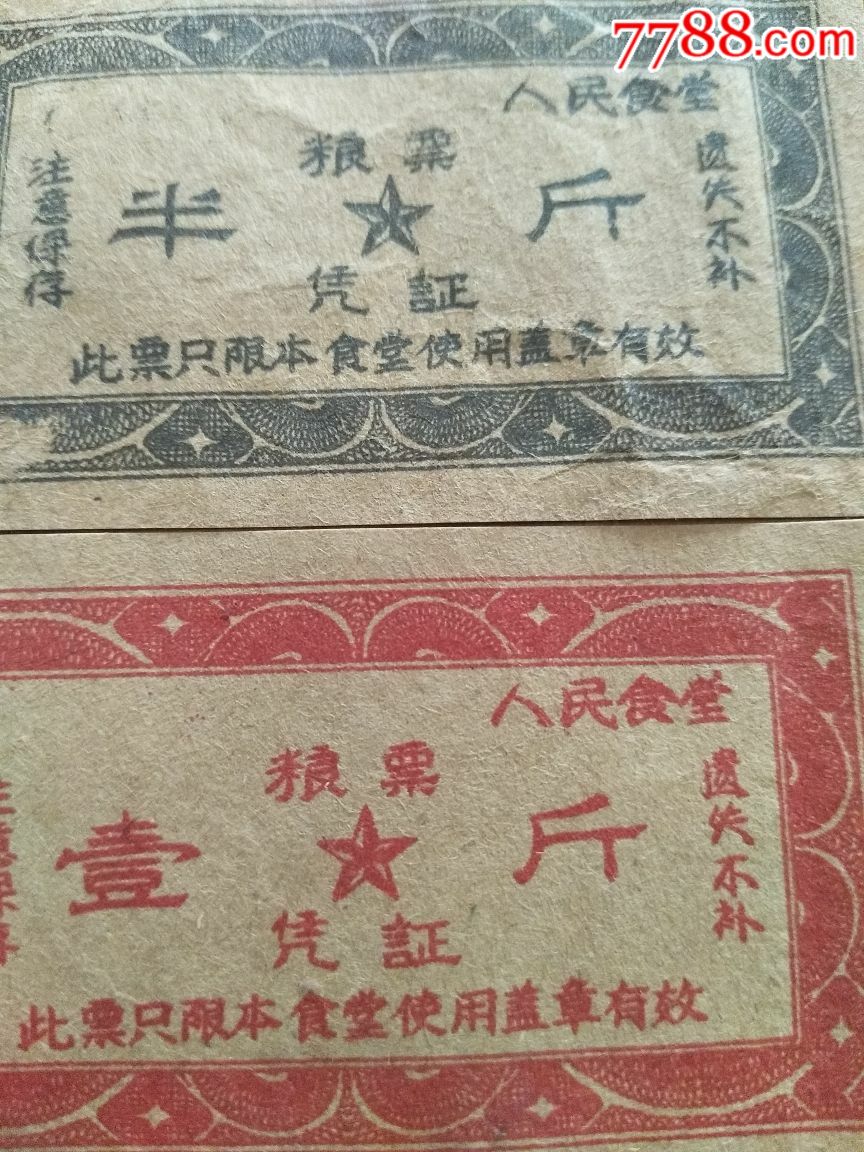 7788.com
人民食堂
粮票
半斤
凭証
注意保存
遗失不补
此票只限本食堂使用盖章有效
人民食堂
粮票
壹斤
凭証
注意保存
遗失不补
此票只限本食堂使用盖章有效